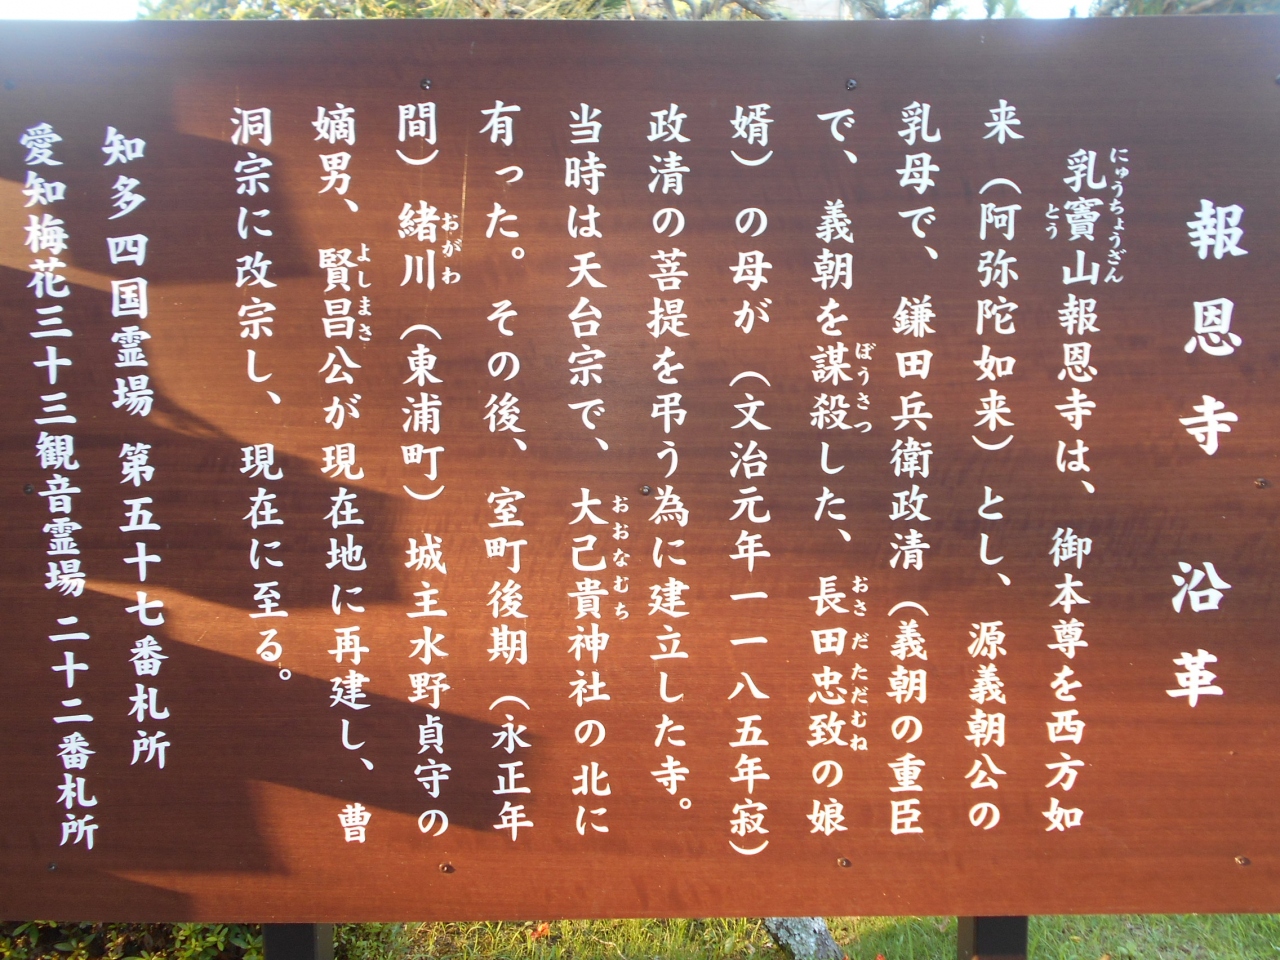 報恩寺 沿革
乳竇山報恩寺は、御本尊を西方如
にゅうちょうざん
とう
来（阿弥陀如来）とし、源義朝公の
乳母で、鎌田兵衛政清（義朝の重臣
で、義朝を謀殺した、長田忠致の娘
ぼうさつ
おさだ ただむね
婿）の母が（文治元年一一八五年寂）
政清の菩提を弔う為に建立した寺。
当時は天台宗で、大己貴神社の北に
おおなむち
有った。その後、室町後期（永正年
間）緒川（東浦町）城主水野貞守の
おがわ
嫡男、賢昌公が現在地に再建し、曹
よしまさ
洞宗に改宗し、現在に至る。
知多四国霊場 第五十七番札所
愛知梅花三十三観音霊場 二十二番札所